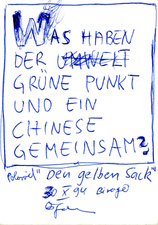 WAS HABEN
DER UMWELT
GRÜNE PUNKT
UND EIN
CHINESE
GEMEINSAM?
"Den gelben Sack"
30 X 94